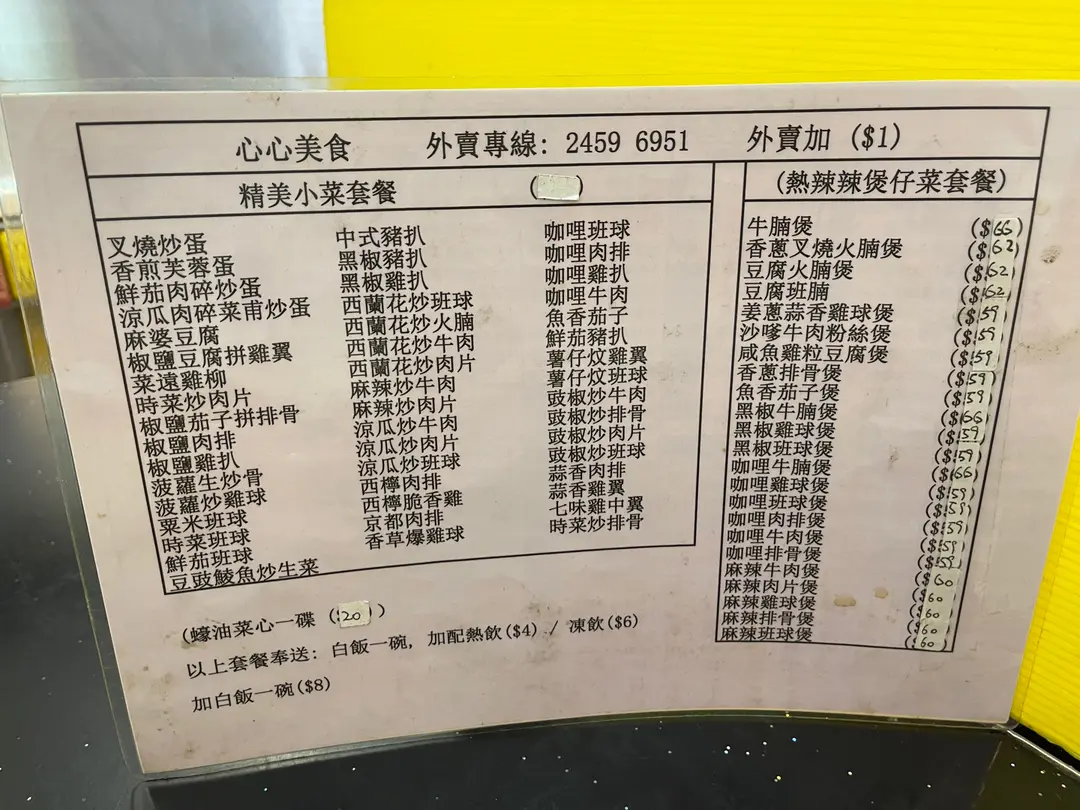 心心美食 外賣專線: 2459 6951 外賣加 ($1)
精美小菜套餐 ( )
叉燒炒蛋
香煎芙蓉蛋
鮮茄肉碎炒蛋
涼瓜肉碎菜甫炒蛋
麻婆豆腐
椒鹽豆腐拼雞翼
菜遠雞柳
時菜炒肉片
椒鹽茄子拼排骨
椒鹽肉排
椒鹽雞扒
菠蘿生炒骨
菠蘿炒雞球
粟米班球
時菜班球
鮮茄班球
豆豉鯪魚炒生菜
中式豬扒
黑椒豬扒
黑椒雞扒
西蘭花炒班球
西蘭花炒火腩
西蘭花炒牛肉
西蘭花炒肉片
麻辣炒牛肉
麻辣炒肉片
涼瓜炒牛肉
涼瓜炒肉片
涼瓜炒班球
西檸肉排
西檸脆香雞
京都肉排
香草爆雞球
咖哩班球
咖哩肉排
咖哩雞扒
咖哩牛肉
魚香茄子
鮮茄豬扒
薯仔炆雞翼
薯仔炆班球
豉椒炒牛肉
豉椒炒排骨
豉椒炒肉片
豉椒炒班球
蒜香肉排
蒜香雞翼
七味雞中翼
時菜炒排骨
(熱辣辣煲仔菜套餐)
牛腩煲 ($66)
香蔥叉燒火腩煲 ($62)
豆腐火腩煲 ($62)
豆腐班腩 ($62)
姜蔥蒜香雞球煲 ($59)
沙嗲牛肉粉絲煲 ($59)
咸魚雞粒豆腐煲 ($59)
香蔥排骨煲 ($59)
魚香茄子煲 ($59)
黑椒牛腩煲 ($66)
黑椒雞球煲 ($59)
黑椒班球煲 ($59)
咖哩牛腩煲 ($66)
咖哩雞球煲 ($59)
咖哩班球煲 ($59)
咖哩肉排煲 ($59)
咖哩牛肉煲 ($59)
咖哩排骨煲 ($59)
麻辣牛肉煲 ($60)
麻辣肉片煲 ($60)
麻辣雞球煲 ($60)
麻辣排骨煲 ($60)
麻辣班球煲 ($60)
(蠔油菜心一碟 ($20))
以上套餐奉送: 白飯一碗, 加配熱飲($4) / 凍飲($6)
加白飯一碗($8)